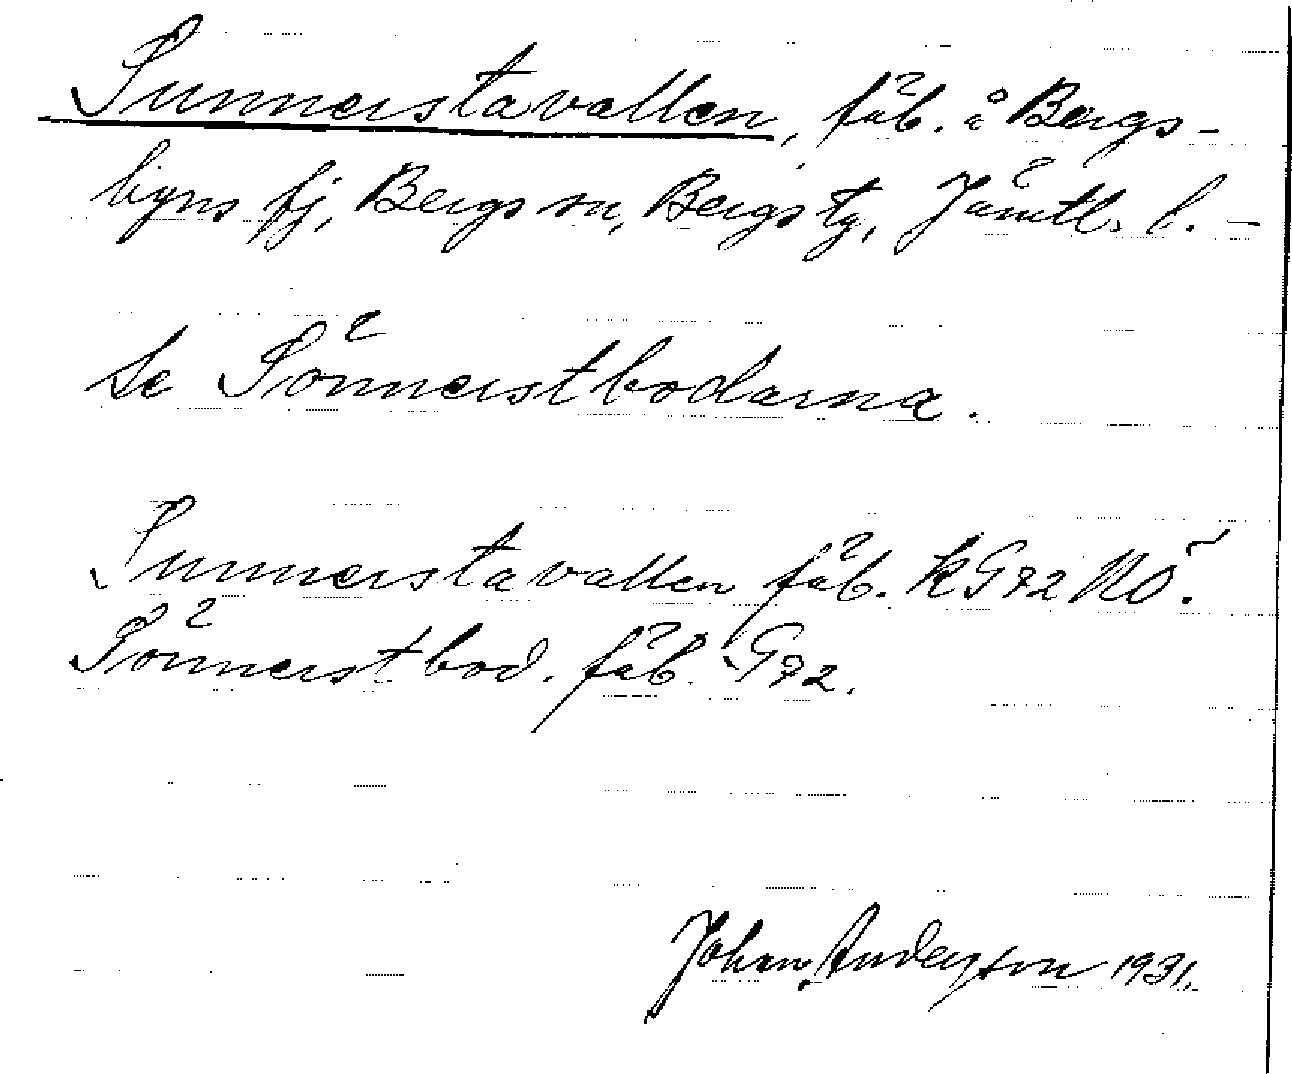 Sunnerstavallen, fäb. å Bergs-
byns fj, Bergs sn, Bergs tg, Jämtl. l. -
Se Sönnerstbodarna.
Sunnerstavallen fäb. k G 72 NÖ.
Sönnerstbod. fäb. G 72.
Johan Anderson 1931.